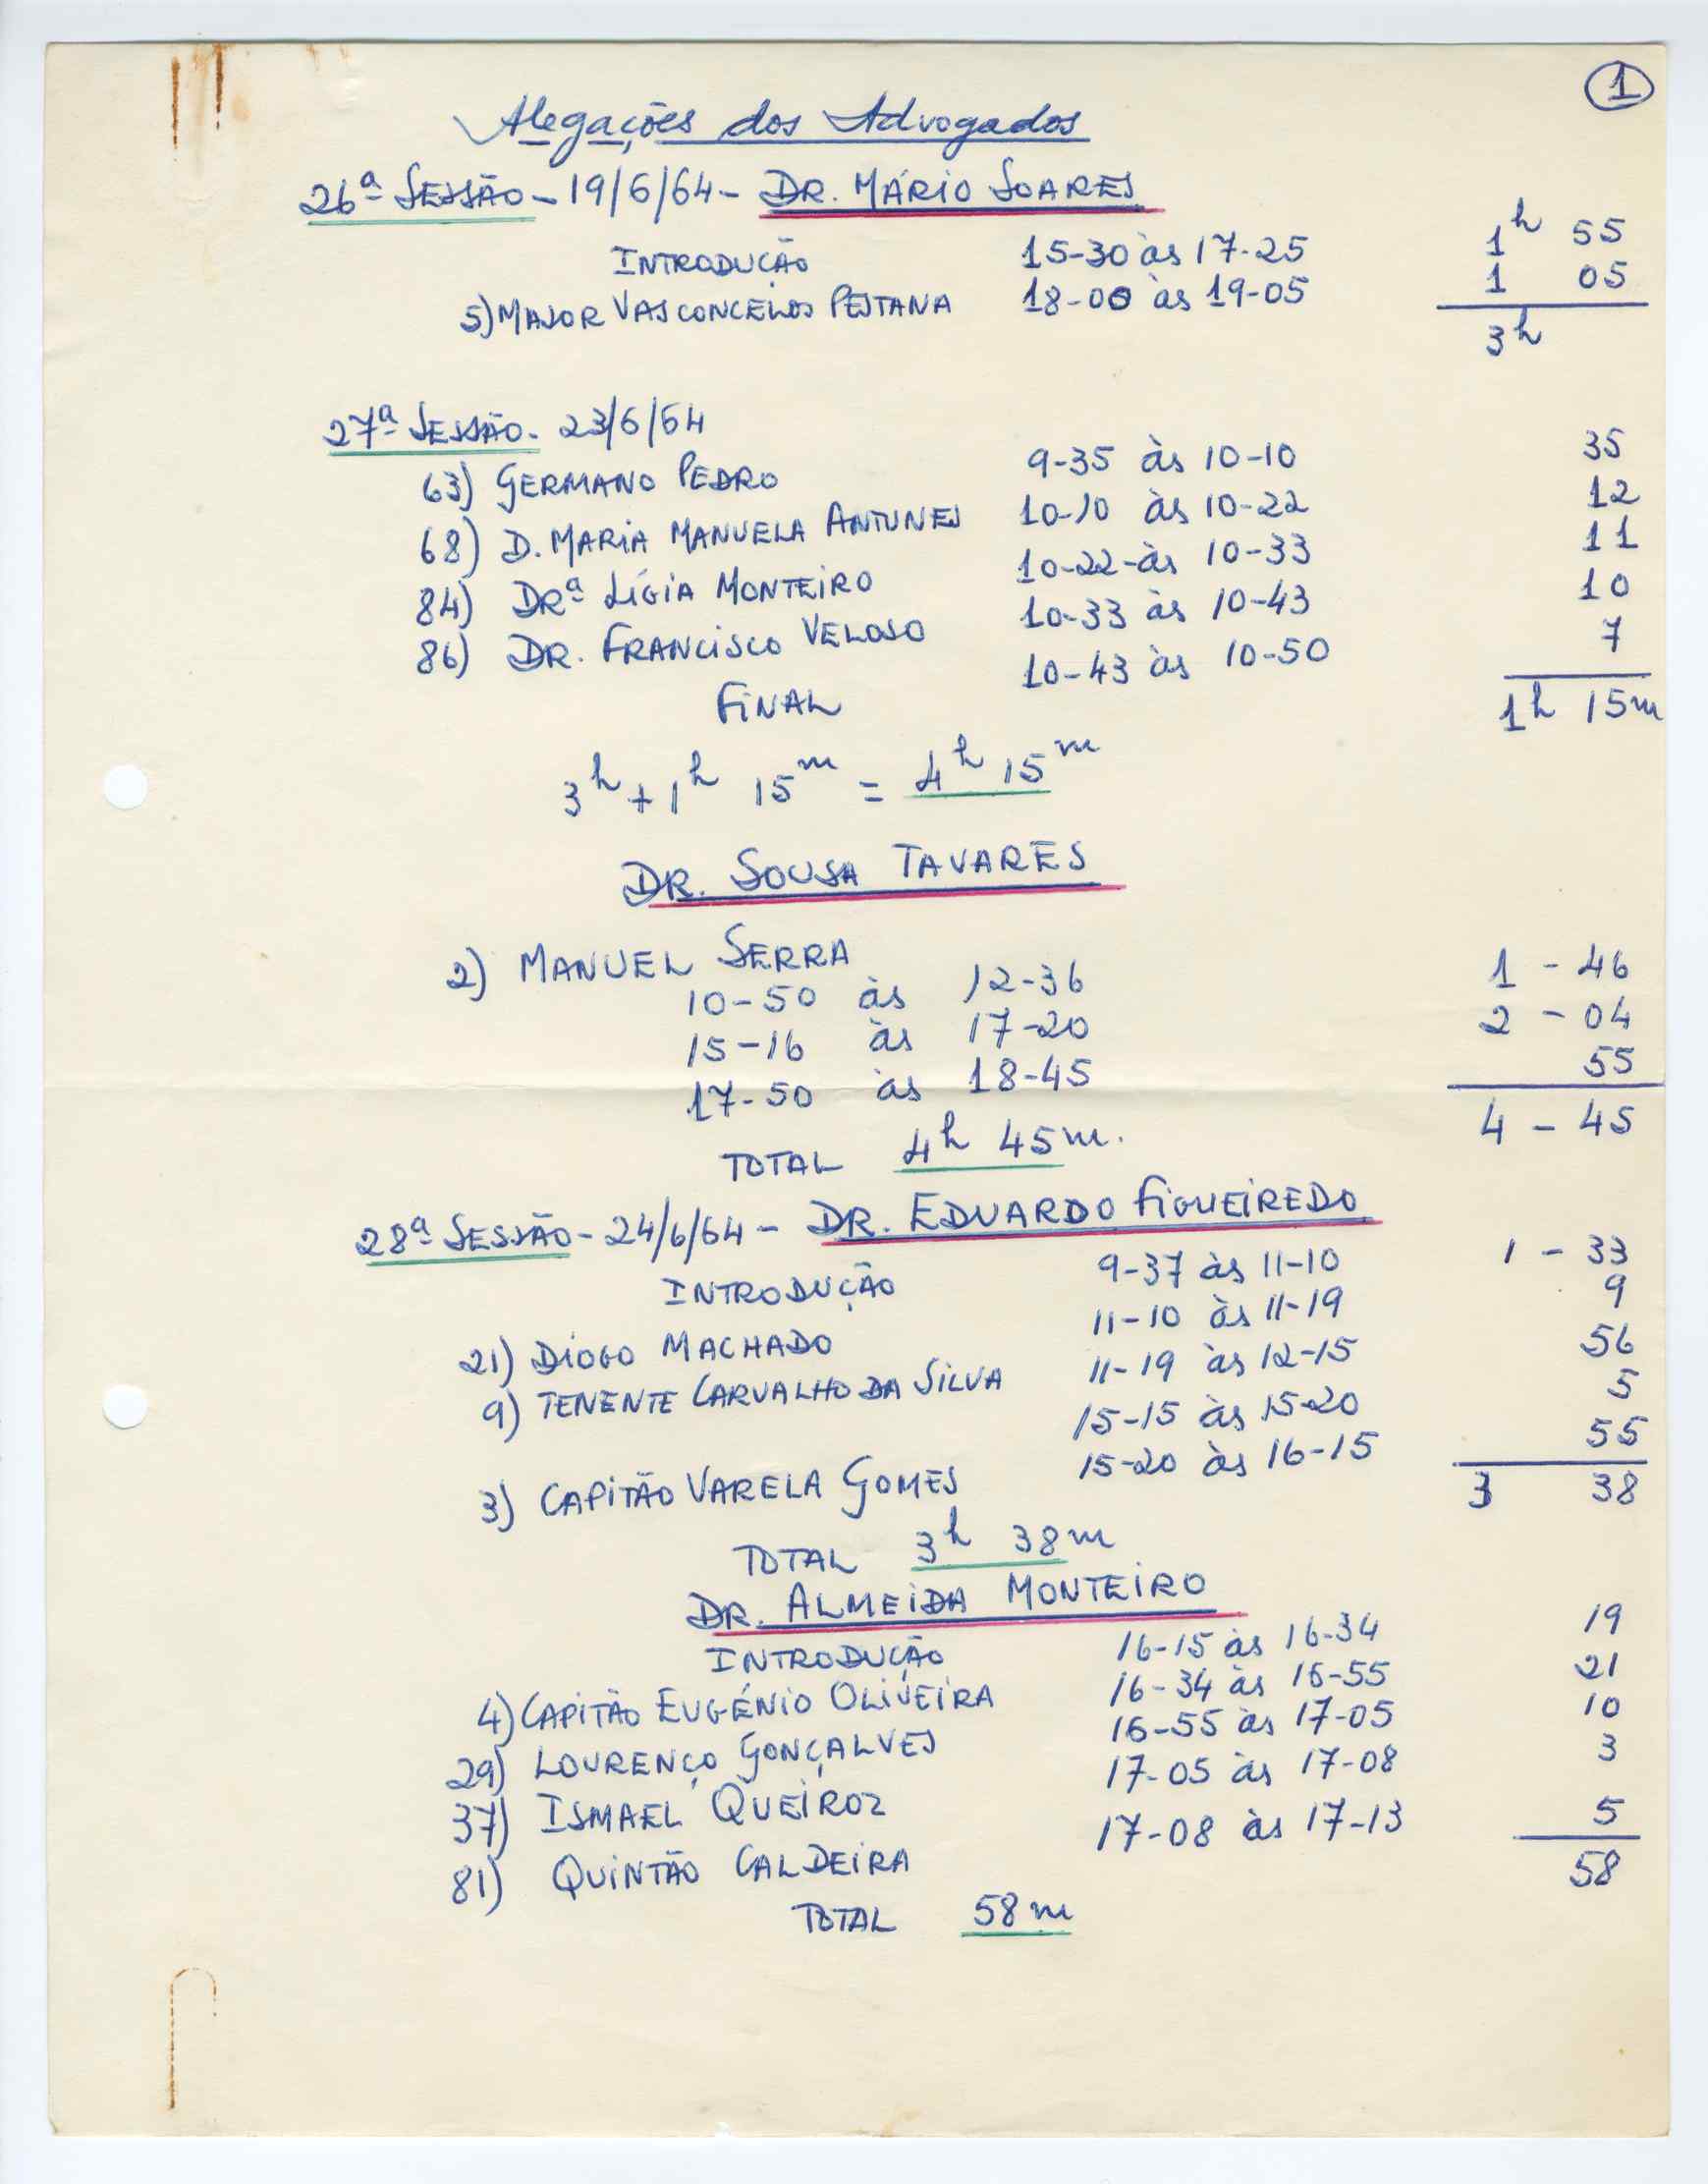 1
Alegações dos Advogados
26ª SESSÃO - 19/6/64 - DR. MÁRIO SOARES
INTRODUÇÃO 15-30 às 17-25 1h 55
5) MAJOR VASCONCELOS PESTANA 18-00 às 19-05 1 05
3h
27ª SESSÃO - 23/6/64
63) GERMANO PEDRO 9-35 às 10-10 35
68) D. MARIA MANUELA ANTUNES 10-10 às 10-22 12
84) DRª LÍGIA MONTEIRO 10-22 às 10-33 11
86) DR. FRANCISCO VELOSO 10-33 às 10-43 10
FINAL 10-43 às 10-50 7
1h 15m
3h + 1h 15m = 4h 15m
DR. SOUSA TAVARES
2) MANUEL SERRA
10-50 às 12-36 1 - 46
15-16 às 17-20 2 - 04
17-50 às 18-45 55
TOTAL 4h 45m. 4 - 45
28ª SESSÃO - 24/6/64 - DR. EDUARDO FIGUEIREDO
INTRODUÇÃO 9-37 às 11-10 1 - 33
21) DIOGO MACHADO 11-10 às 11-19 9
9) TENENTE CARVALHO DA SILVA 11-19 às 12-15 56
15-15 às 15-20 5
3) CAPITÃO VARELA GOMES 15-20 às 16-15 55
3 38
TOTAL 3h 38m
DR. ALMEIDA MONTEIRO
INTRODUÇÃO 16-15 às 16-34 19
4) CAPITÃO EUGÉNIO OLIVEIRA 16-34 às 16-55 21
29) LOURENÇO GONÇALVES 16-55 às 17-05 10
37) ISMAEL QUEIROZ 17-05 às 17-08 3
81) QUINTÃO CALDEIRA 17-08 às 17-13 5
58
TOTAL 58m